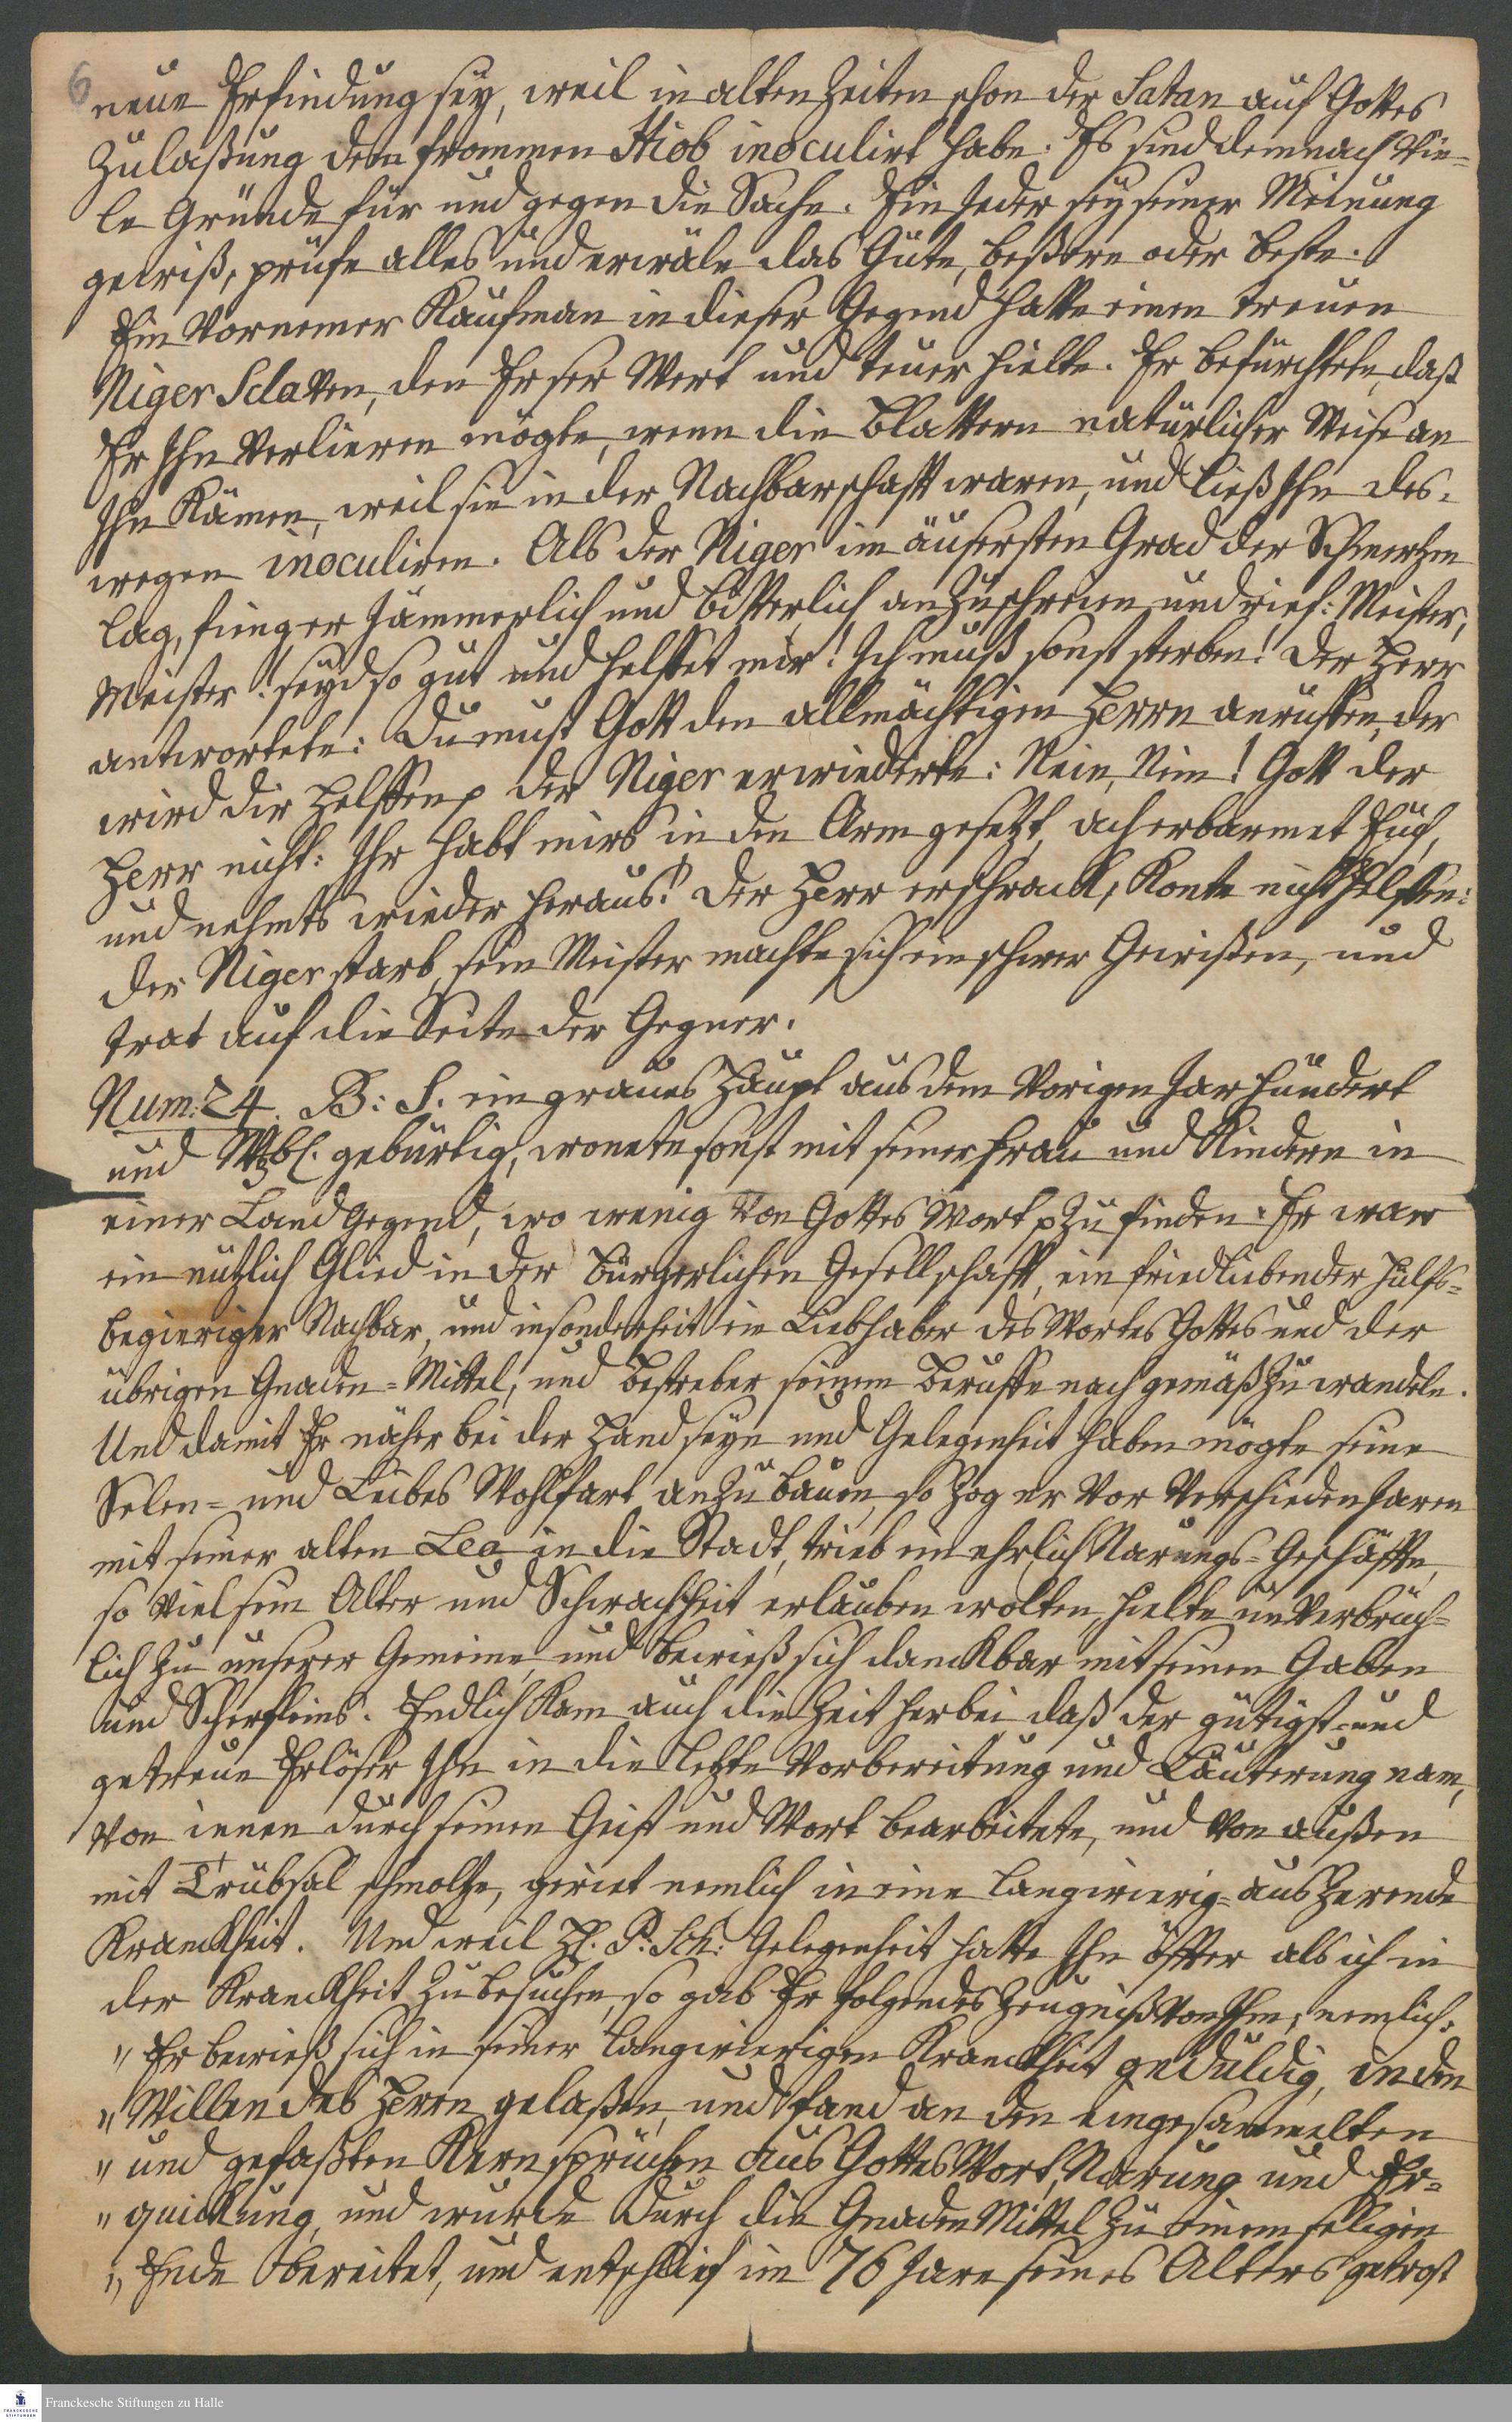 6
neue Erfindung sey, weil in alten Zeiten schon der Satan auf Gottes
Zulaßung dem frommen Hiob inoculirt habe. Es sind demnach vie-
le Gründe für und gegen die Sache. Ein Jeder sey seiner Meinung
gewiß, prüfe alles und erwäle das Gute, beßere oder beste.
Ein vornemer Kaufman in dieser Gegend hatte einen treuen
Niger Sclaven, den Er ser Wert und teuer hielte. Er befürchtete, daß
Er Ihn verlieren mögte, wenn die Blattern natürlicher Weise an
Ihn kämen, weil sie in der Nachbarschafft waren, und ließ Ihn des-
wegen inoculiren. Als der Niger im äusersten Grad der Schmertzen
lag, fing er jämmerlich und bitterlich an zu schreien und rief: Meister,
Meister! seyd so gut und helffet mir! Ich muß sonst sterben! Der Herr
antwortete: Du must Gott den allmächtigen Herrn anruffen, der
wird dir helffen p der Niger erwiederte: Nein, Nein! Gott der
Herr nicht: Ihr habt mirs in den Arm gesetzt, ach erbarmet Euch,
und nehmts wieder heraus! Der Herr erschrack, konte nicht helffen:
der Niger starb, sein Meister machte sich ein schwer Gewißen, und
trat auf die Seite der Gegner.
Num: 24. B: S. ein graues Haupt aus dem vorigen Jarhundert
und gebürtig, wonete sonst mit seiner Frau und Kindern in
einer Land Gegend, wo wenig von Gottes Wort p zu finden. Er war
ein nützlich Glied in der bürgerlichen Gesellschafft, ein friedliebender hülfs-
begieriger Nachbar, und insonderheit ein Liebhaber des Wortes Gottes und der
übrigen Gnaden-Mittel, und bestreber seinem Beruffe nach gemäß zu wandeln.
Und damit Er näher bei der Hand seyn und Gelegenheit haben mögte seine
Selen- und Leibes Wohlfart anzubauen, so zog er vor verschieden Jaren
mit seiner alten Lea in die Stadt, trieb ein ehrlich Narungs-Geschäffte,
so viel sein Alter und Schwachheit erlauben wolten, hielte unverbrüch-
lich zu unserer Gemeine, und bewieß sich danckbar mit seinen Gaben
und Scherfleins. Endlich kam auch die Zeit herbei, daß der gütigst- und
getreue Erlöser Ihn in die letzte Vorbereitung und Läuterung nam,
von innen durch seinen Geist und Wort bearbeitete, und von außen
mit Trübsal schmoltze, geriet nemlich in eine langwierig-auszerende
Kranckheit. Und weil H. P. Sch: Gelegenheit hatte Ihn öffter als ich in
der Kranckheit zu besuchen, so gab Er folgendes Zeugniß von Ihm, nemlich:
" Er bewieß sich in seiner langwierigen Kranckheit geduldig, in den
" Willen des Herrn gelaßen, und fand an den eingesammelten
" und gefaßten Kernsprüchen aus Gottes Wort, Narung und Er-
" quickung, und wurde durch die Gnaden Mittel zu einem seligen
" Ende bereitet, und entschlief im 76 Jare seines Alters getrost
Franckesche Stiftungen zu Halle